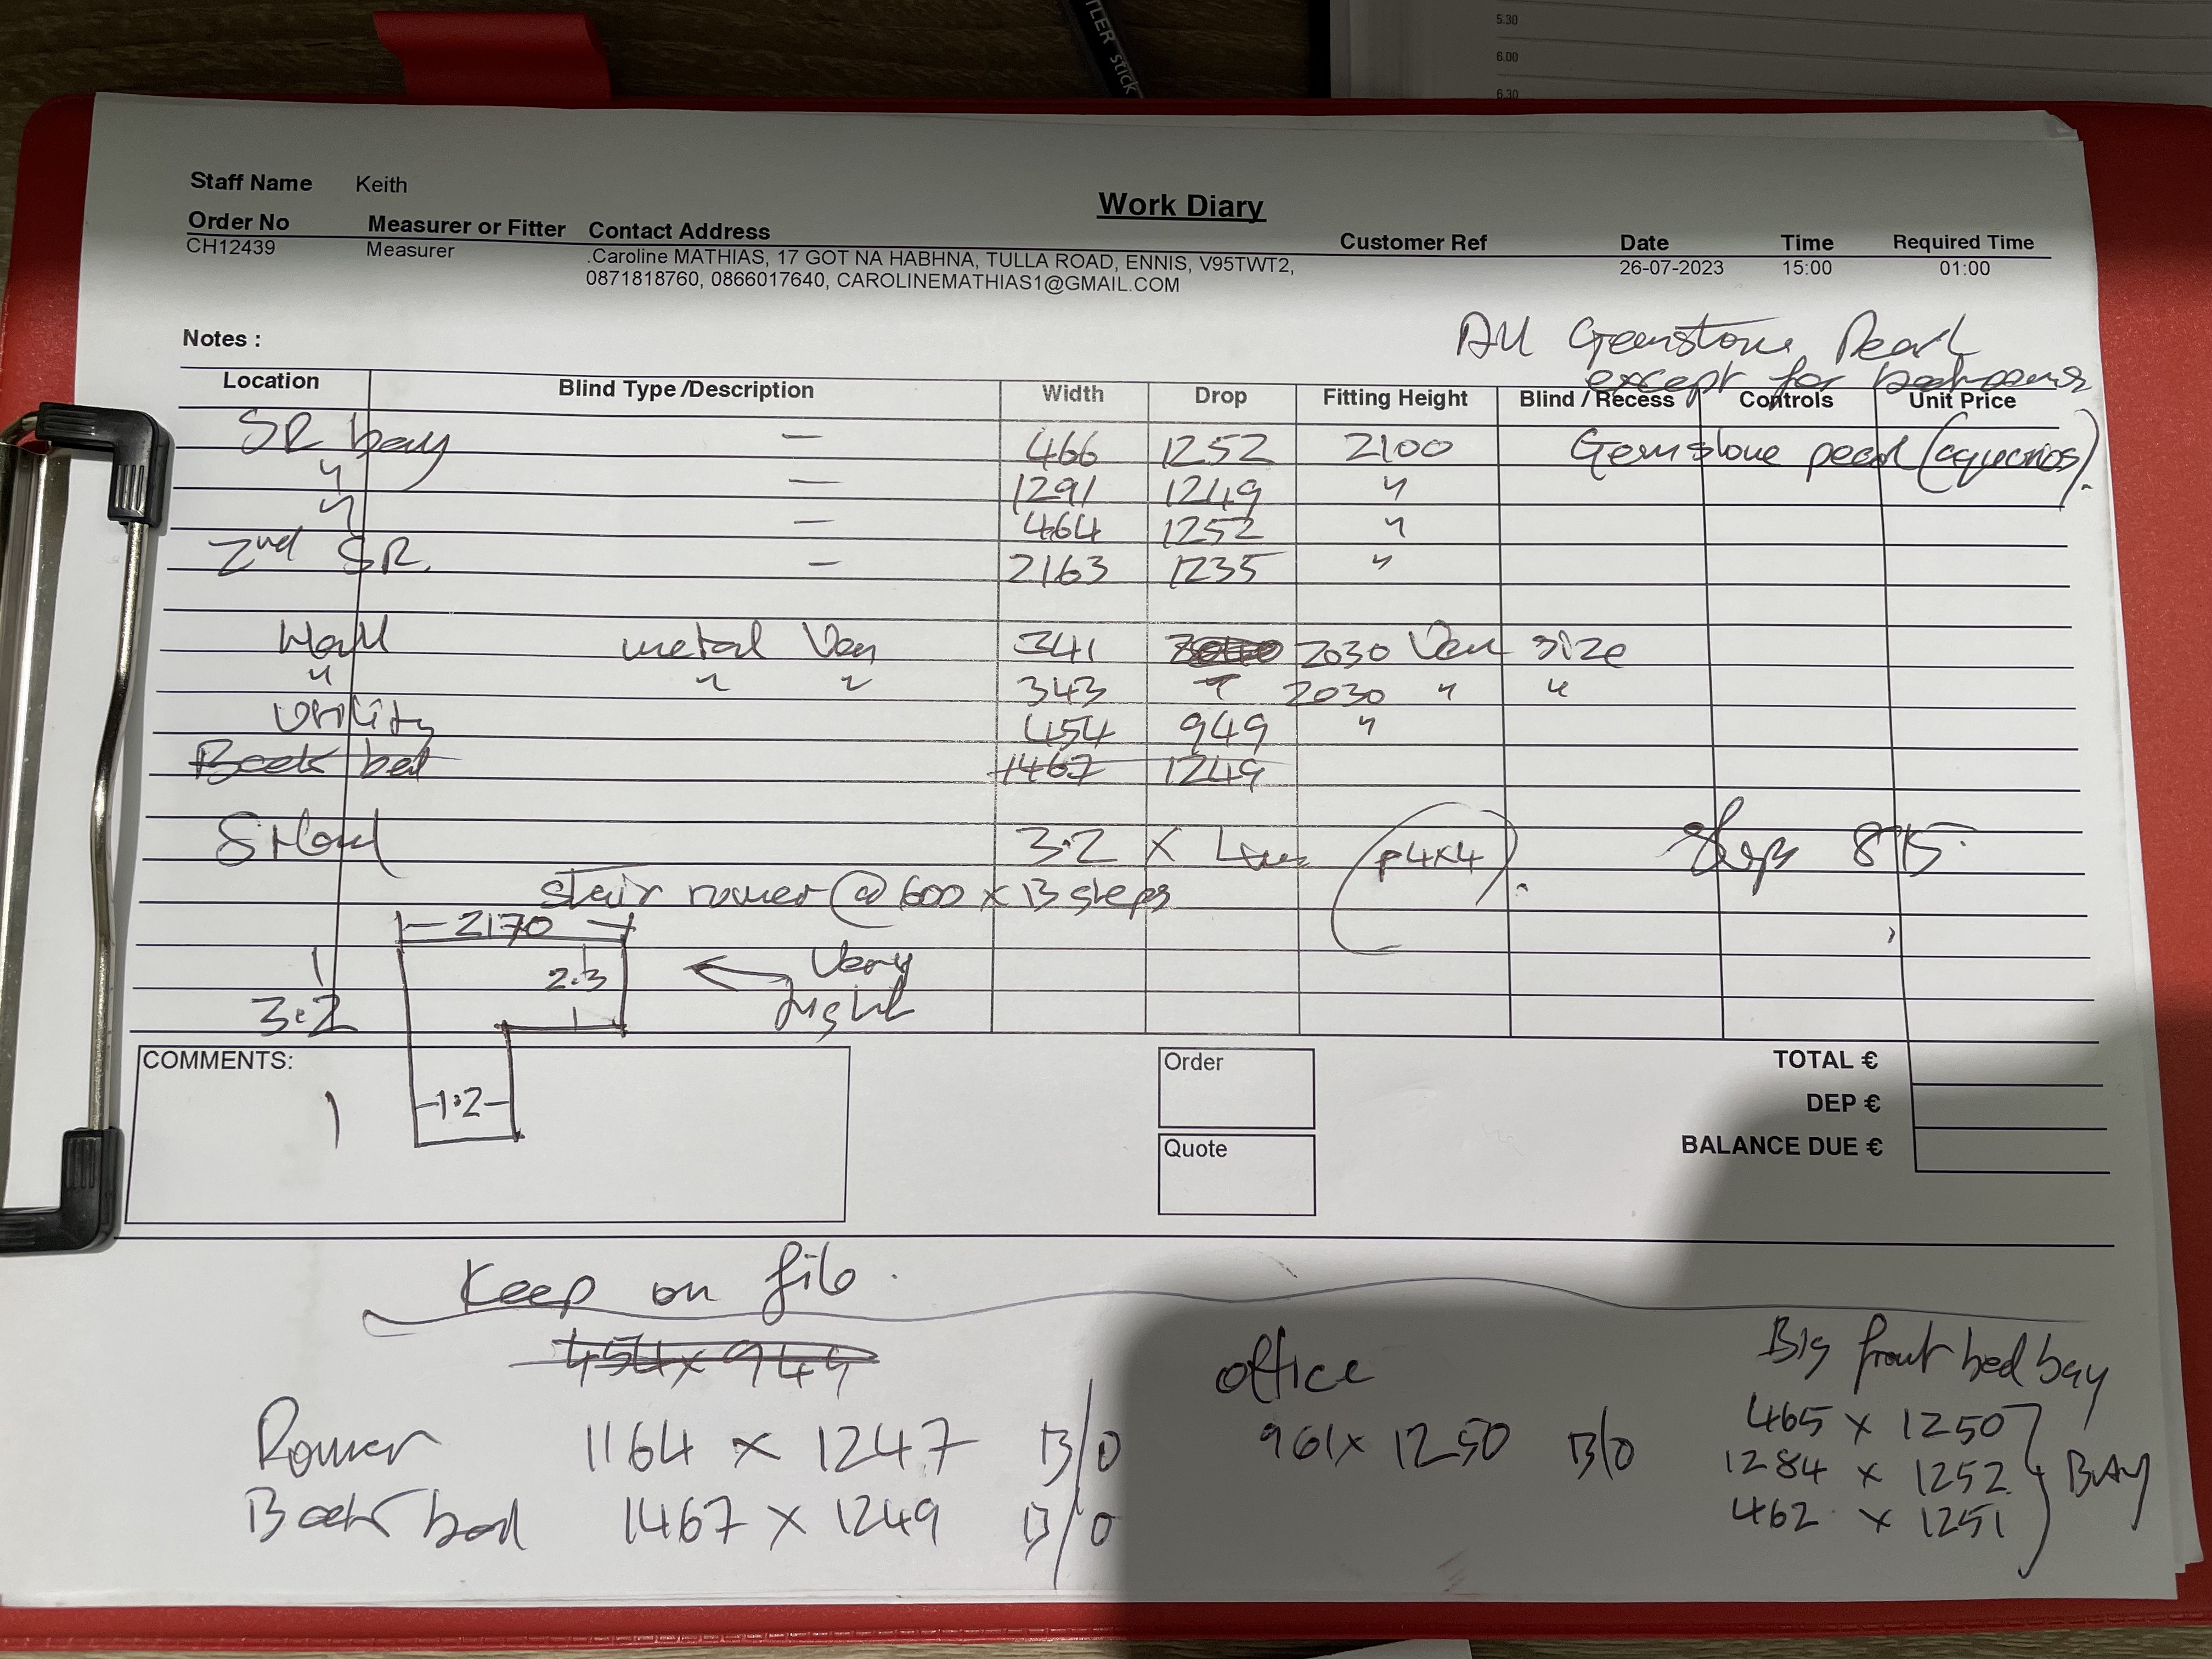 TLER stick
5.30
6.00
6.30
Staff Name Keith
Work Diary
Order No Measurer or Fitter Contact Address Customer Ref Date Time Required Time
CH12439 Measurer .Caroline MATHIAS, 17 GOT NA HABHNA, TULLA ROAD, ENNIS, V95TWT2, 26-07-2023 15:00 01:00
0871818760, 0866017640, CAROLINEMATHIAS1@GMAIL.COM
Notes :
All Gemstone Pearl
except for bedrooms
Location Blind Type /Description Width Drop Fitting Height Blind / Recess Controls Unit Price
SR bay — 466 1252 2100 Gemstone pearl
" — 1291 1249 "
" — 464 1252 "
2nd SR. — 2163 1235 "
Hall metal Ven 341 2030 Ven size
" " " 343 " 2030 " "
Utility 454 949 "
Back bed 1467 1249
3.2 x (+ 4x4). Steps 815
stair runner @ 600 x 13 steps
2170
2.3
Very
3.2
COMMENTS:
1.2
Order
Quote
TOTAL €
DEP €
BALANCE DUE €
Keep on file.
454 x 949
office
Big front bed bay
1164 x 1247 B/O
961 x 1250 B/O
465 x 1250
1284 x 1252 BAY
462 x 1251
Back bed 1467 x 1249 B/O